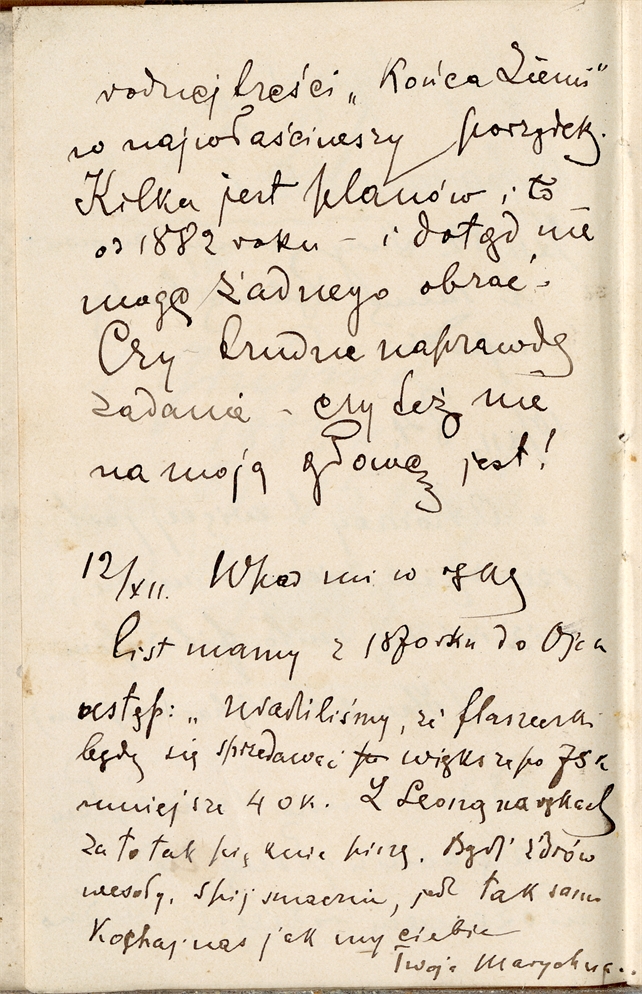 rodnej treści „Końca Ziemi"
w najwłaściwszy porządek.
Kilka jest planów, i to
od 1882 roku – i dotąd nie
mogę żadnego obrać.
Czy trudne naprawdę
zadanie – czy też nie
na moją głowę jest!
12/XII. Wpad mi w rękę
list mamy z 1870 roku do Ojca
ustęp: „ uradziliśmy, że
będą się sprzedawać po większe po 75 k
mniejsze 40 k. Z Leosią na rękach
za to tak pięknie piszę. Bądź zdrów
wesoły, śpij smacznie, jedz tak samo
Kochaj nas jak my ciebie
Twoja Marychna..